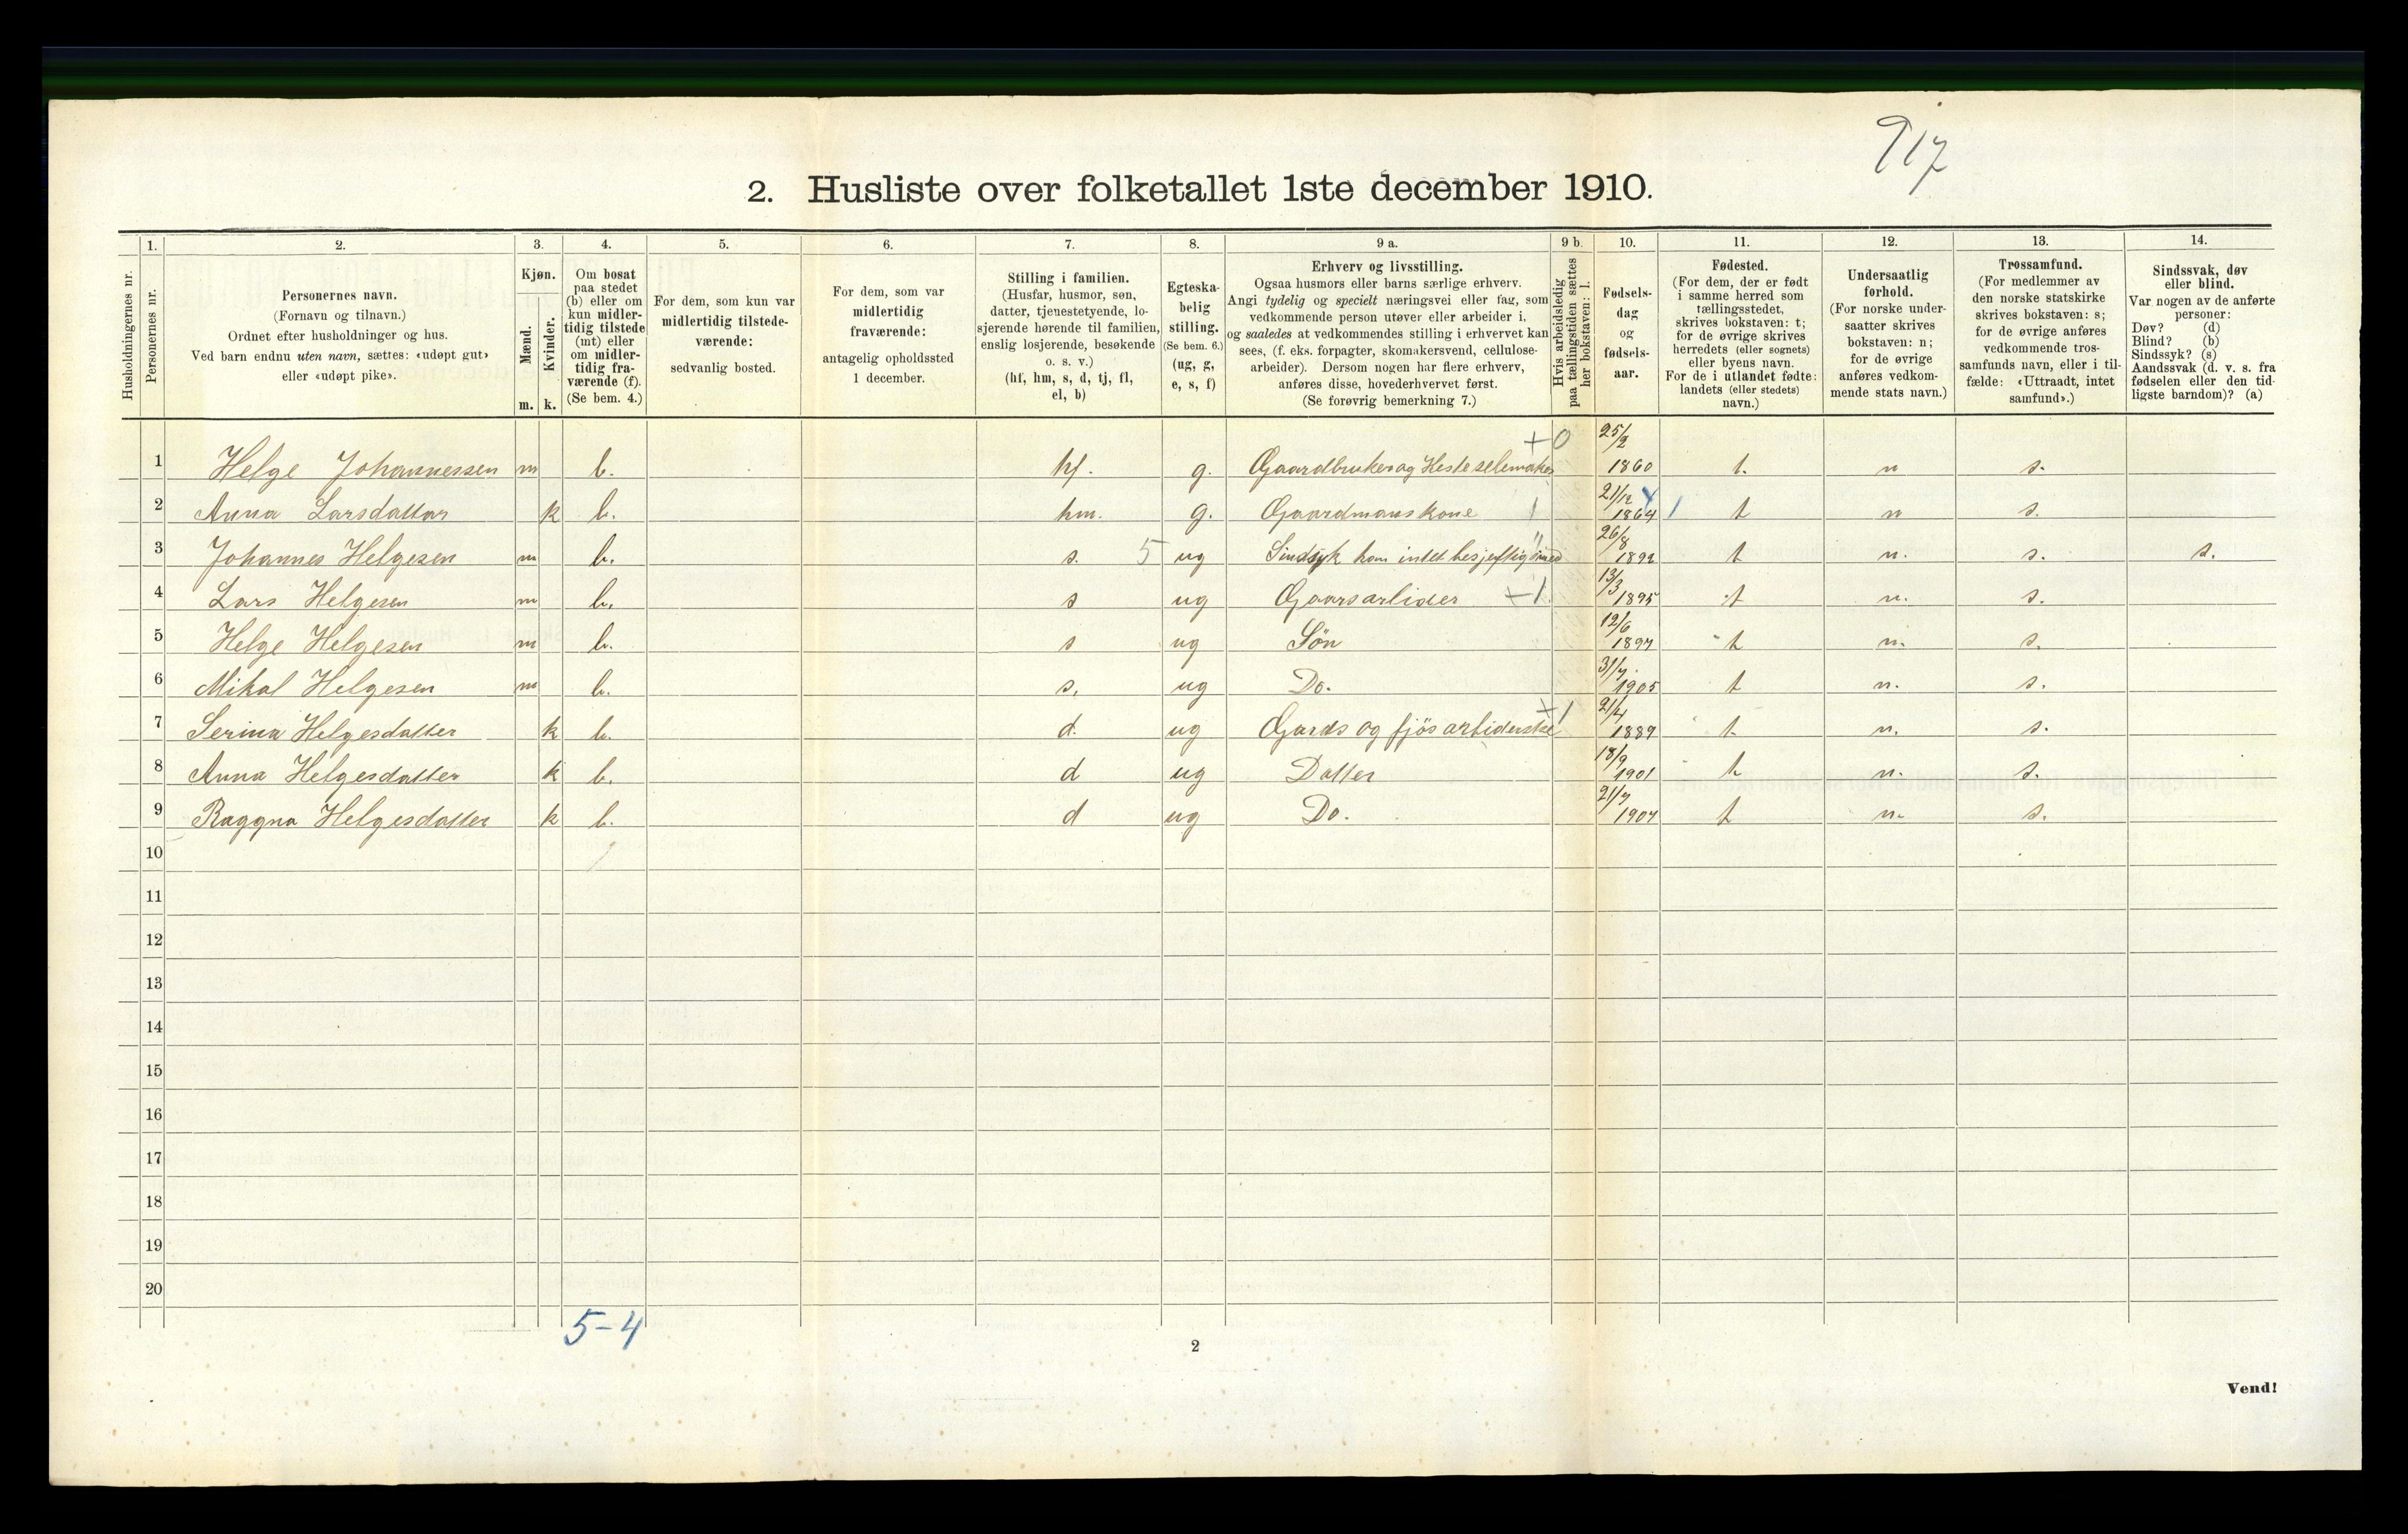 917
2. Husliste over folketallet 1ste december 1910.
Husholdningernes nr.
1.
Personernes nr.
2.
Personernes navn.
(Fornavn og tilnavn.)
Ordnet efter husholdninger og hus.
Ved barn endnu uten navn, sættes: «udøpt gut»
eller «udøpt pike».
3.
Kjøn.
Mænd.
Kvinder.
m.
k.
4.
Om bosat
paa stedet
(b) eller om
kun midler-
tidig tilstede
(mt) eller
om midler-
tidig fra-
værende (f).
(Se bem. 4.)
5.
For dem, som kun var
midlertidig tilstede-
værende:
sedvanlig bosted.
6.
For dem, som var
midlertidig
fraværende:
antagelig opholdssted
1 december.
7.
Stilling i familien.
(Husfar, husmor, søn,
datter, tjenestetyende, lo-
sjerende hørende til familien,
enslig losjerende, besøkende
o. s. v.)
(hf, hm, s, d, tj, fl,
el, b)
8.
Egteska-
belig
stilling.
(Se bem. 6.)
(ug, g,
e, s, f)
9 a.
Erhverv og livsstilling.
Ogsaa husmors eller barns særlige erhverv.
Angi tydelig og specielt næringsvei eller fag, som
vedkommende person utøver eller arbeider i,
og saaledes at vedkommendes stilling i erhvervet kan
sees, (f. eks. forpagter, skomakersvend, cellulose-
arbeider). Dersom nogen har flere erhverv,
anføres disse, hovederhvervet først.
(Se forøvrig bemerkning 7.)
9 b.
Hvis arbeidsledig
paa tællingstiden sættes
her bokstaven: l.
10.
Fødsels-
dag
og
fødsels-
aar.
11.
Fødested.
(For dem, der er født
i samme herred som
tællingsstedet,
skrives bokstaven: t;
for de øvrige skrives
herredets (eller sognets)
eller byens navn.
For de i utlandet fødte:
landets (eller stedets)
navn.)
12.
Undersaatlig
forhold.
(For norske under-
saatter skrives
bokstaven: n;
for de øvrige
anføres vedkom-
mende stats navn.)
13.
Trossamfund.
(For medlemmer av
den norske statskirke
skrives bokstaven: s;
for de øvrige anføres
vedkommende tros-
samfunds navn, eller i til-
fælde: «Uttraadt, intet
samfund».)
14.
Sindssvak, døv
eller blind.
Var nogen av de anførte
personer:
Døv? (d)
Blind? (b)
Sindssyk? (s)
Aandssvak (d. v. s. fra
fødselen eller den tid-
ligste barndom)? (a)
1 Helge Johannessen m b. hf. g. Gaardbruker og Hesteselemaker +0 25/2 1860 t. n s.
2 Anna Larsdatter k b. hm. g. Gaardmanskone 1 21/12 1864 1 t n s.
3 Johannes Helgesen m b. s. 5 ug Sindsyk kan intet besjeftig med 26/8 1892 t n. s. s.
4 Lars Helgesen m b. s ug Gaarsarbider +1 13/3 1895 t n. s.
5 Helge Helgesen m b. s ug Søn 12/6 1897 t n. s.
6 Mikal Helgesen m b. s. ug Do. 31/7 1905 t n. s.
7 Serina Helgesdatter k b. d. ug Gards og fjøsarbiderske +1 21/4 1889 t. n. s.
8 Anna Helgesdatter k b. d ug Datter 18/9 1901 t. n. s.
9 Raggna Helgesdatter k b. d ug Do. 21/7 1907 t n. s.
10
11
12
13
14
15
16
17
18
19
20
5-4
2
Vend!